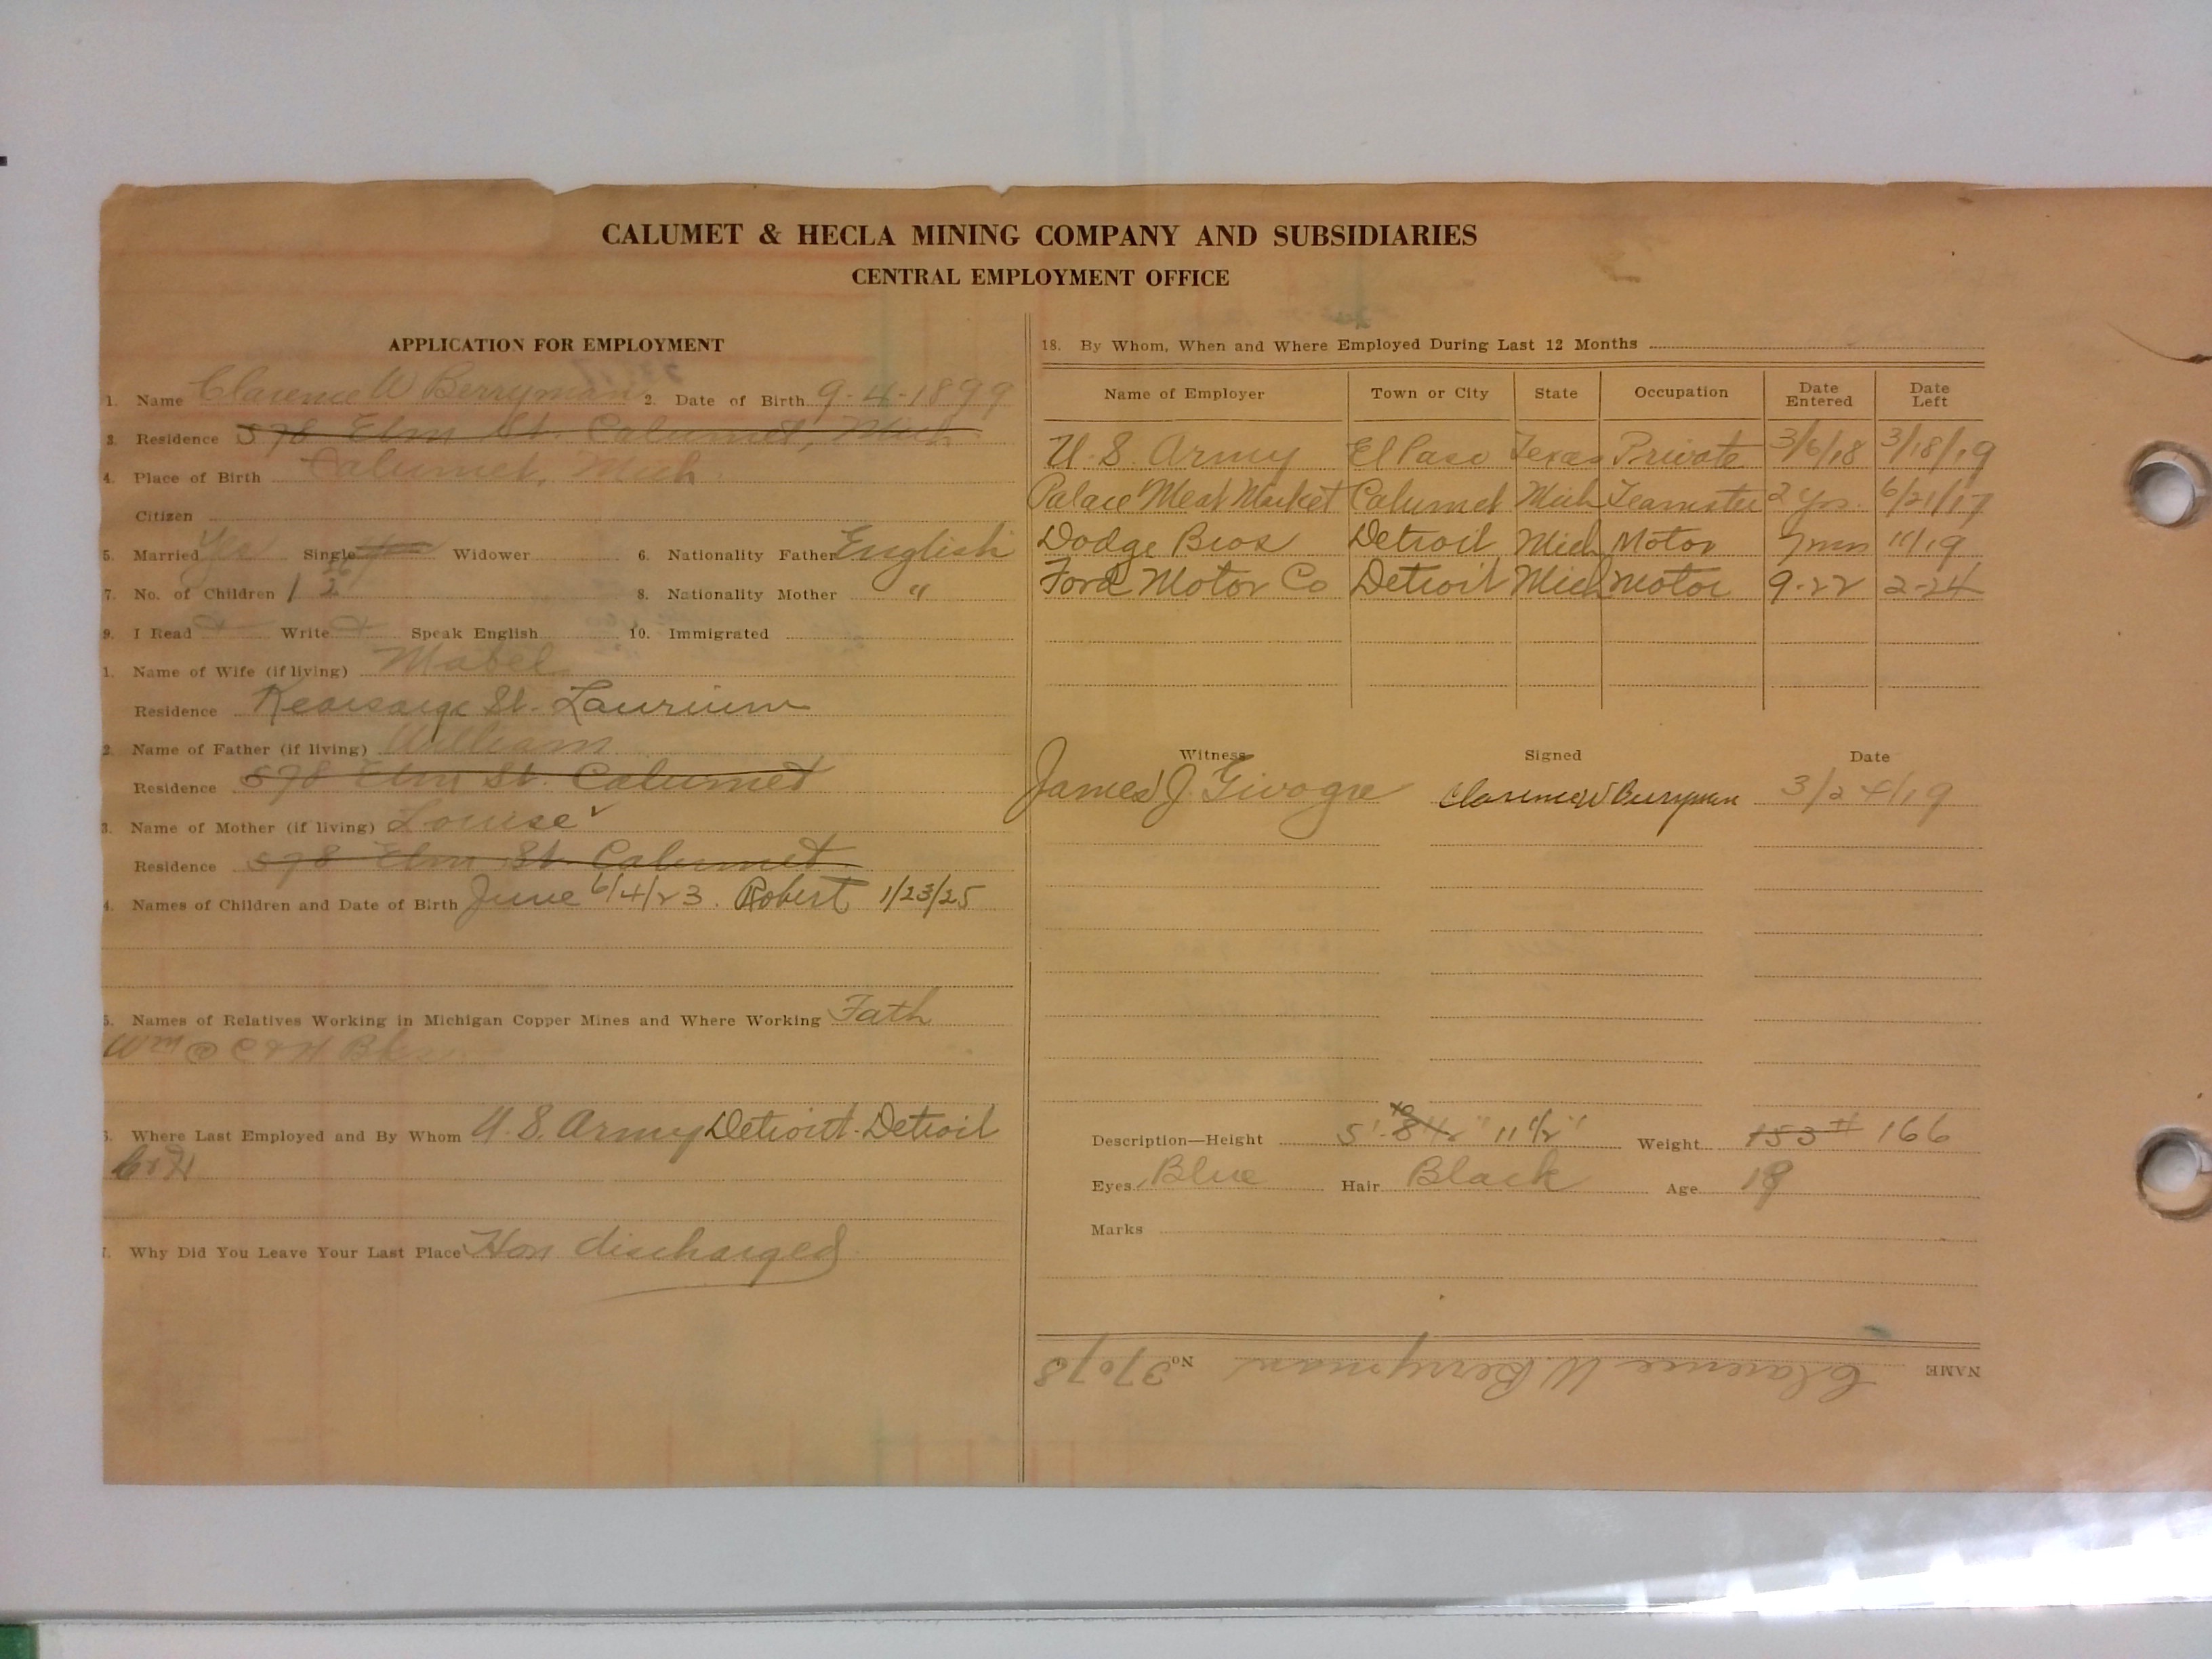 CALUMET & HECLA MINING COMPANY AND SUBSIDIARIES
CENTRAL EMPLOYMENT OFFICE
APPLICATION FOR EMPLOYMENT
1. Name Clarence W Berryman 2. Date of Birth 9-4-1899
3. Residence 578 Elm St. Calumet, Mich.
4. Place of Birth Calumet, Mich.
Citizen
5. Married Yes Single Widower 6. Nationality Father English
7. No. of Children 1 2 8. Nationality Mother "
9. I Read Write Speak English 10. Immigrated
1. Name of Wife (if living) Mabel
Residence Kearsarge St. Laurium
2. Name of Father (if living) William
Residence 578 Elm St. Calumet
3. Name of Mother (if living) Louise
Residence 578 Elm St. Calumet
4. Names of Children and Date of Birth June 6/4/23. Robert 1/23/25
5. Names of Relatives Working in Michigan Copper Mines and Where Working Fath
Wm @ C & H
Where Last Employed and By Whom U.S. Army Detroit - Detroit
C & H
Why Did You Leave Your Last Place Hon discharged
18. By Whom, When and Where Employed During Last 12 Months
Name of Employer Town or City State Occupation Date Entered Date Left
U.S. Army El Paso Texas Private 3/6/18 3/18/19
Palace Meat Market Calumet Mich Teamster 2 yrs. 6/21/17
Dodge Bros Detroit Mich Motor 11/19
Ford Motor Co Detroit Mich Motor 9-22 2-24
Witness Signed Date
James J. Clarence W Berryman 3/24/19
Description—Height 5'- 8 1/2" 11 1/2" Weight 153# 166
Eyes Blue Hair Black Age 19
Marks
NAME Clarence W. Berryman No 37078